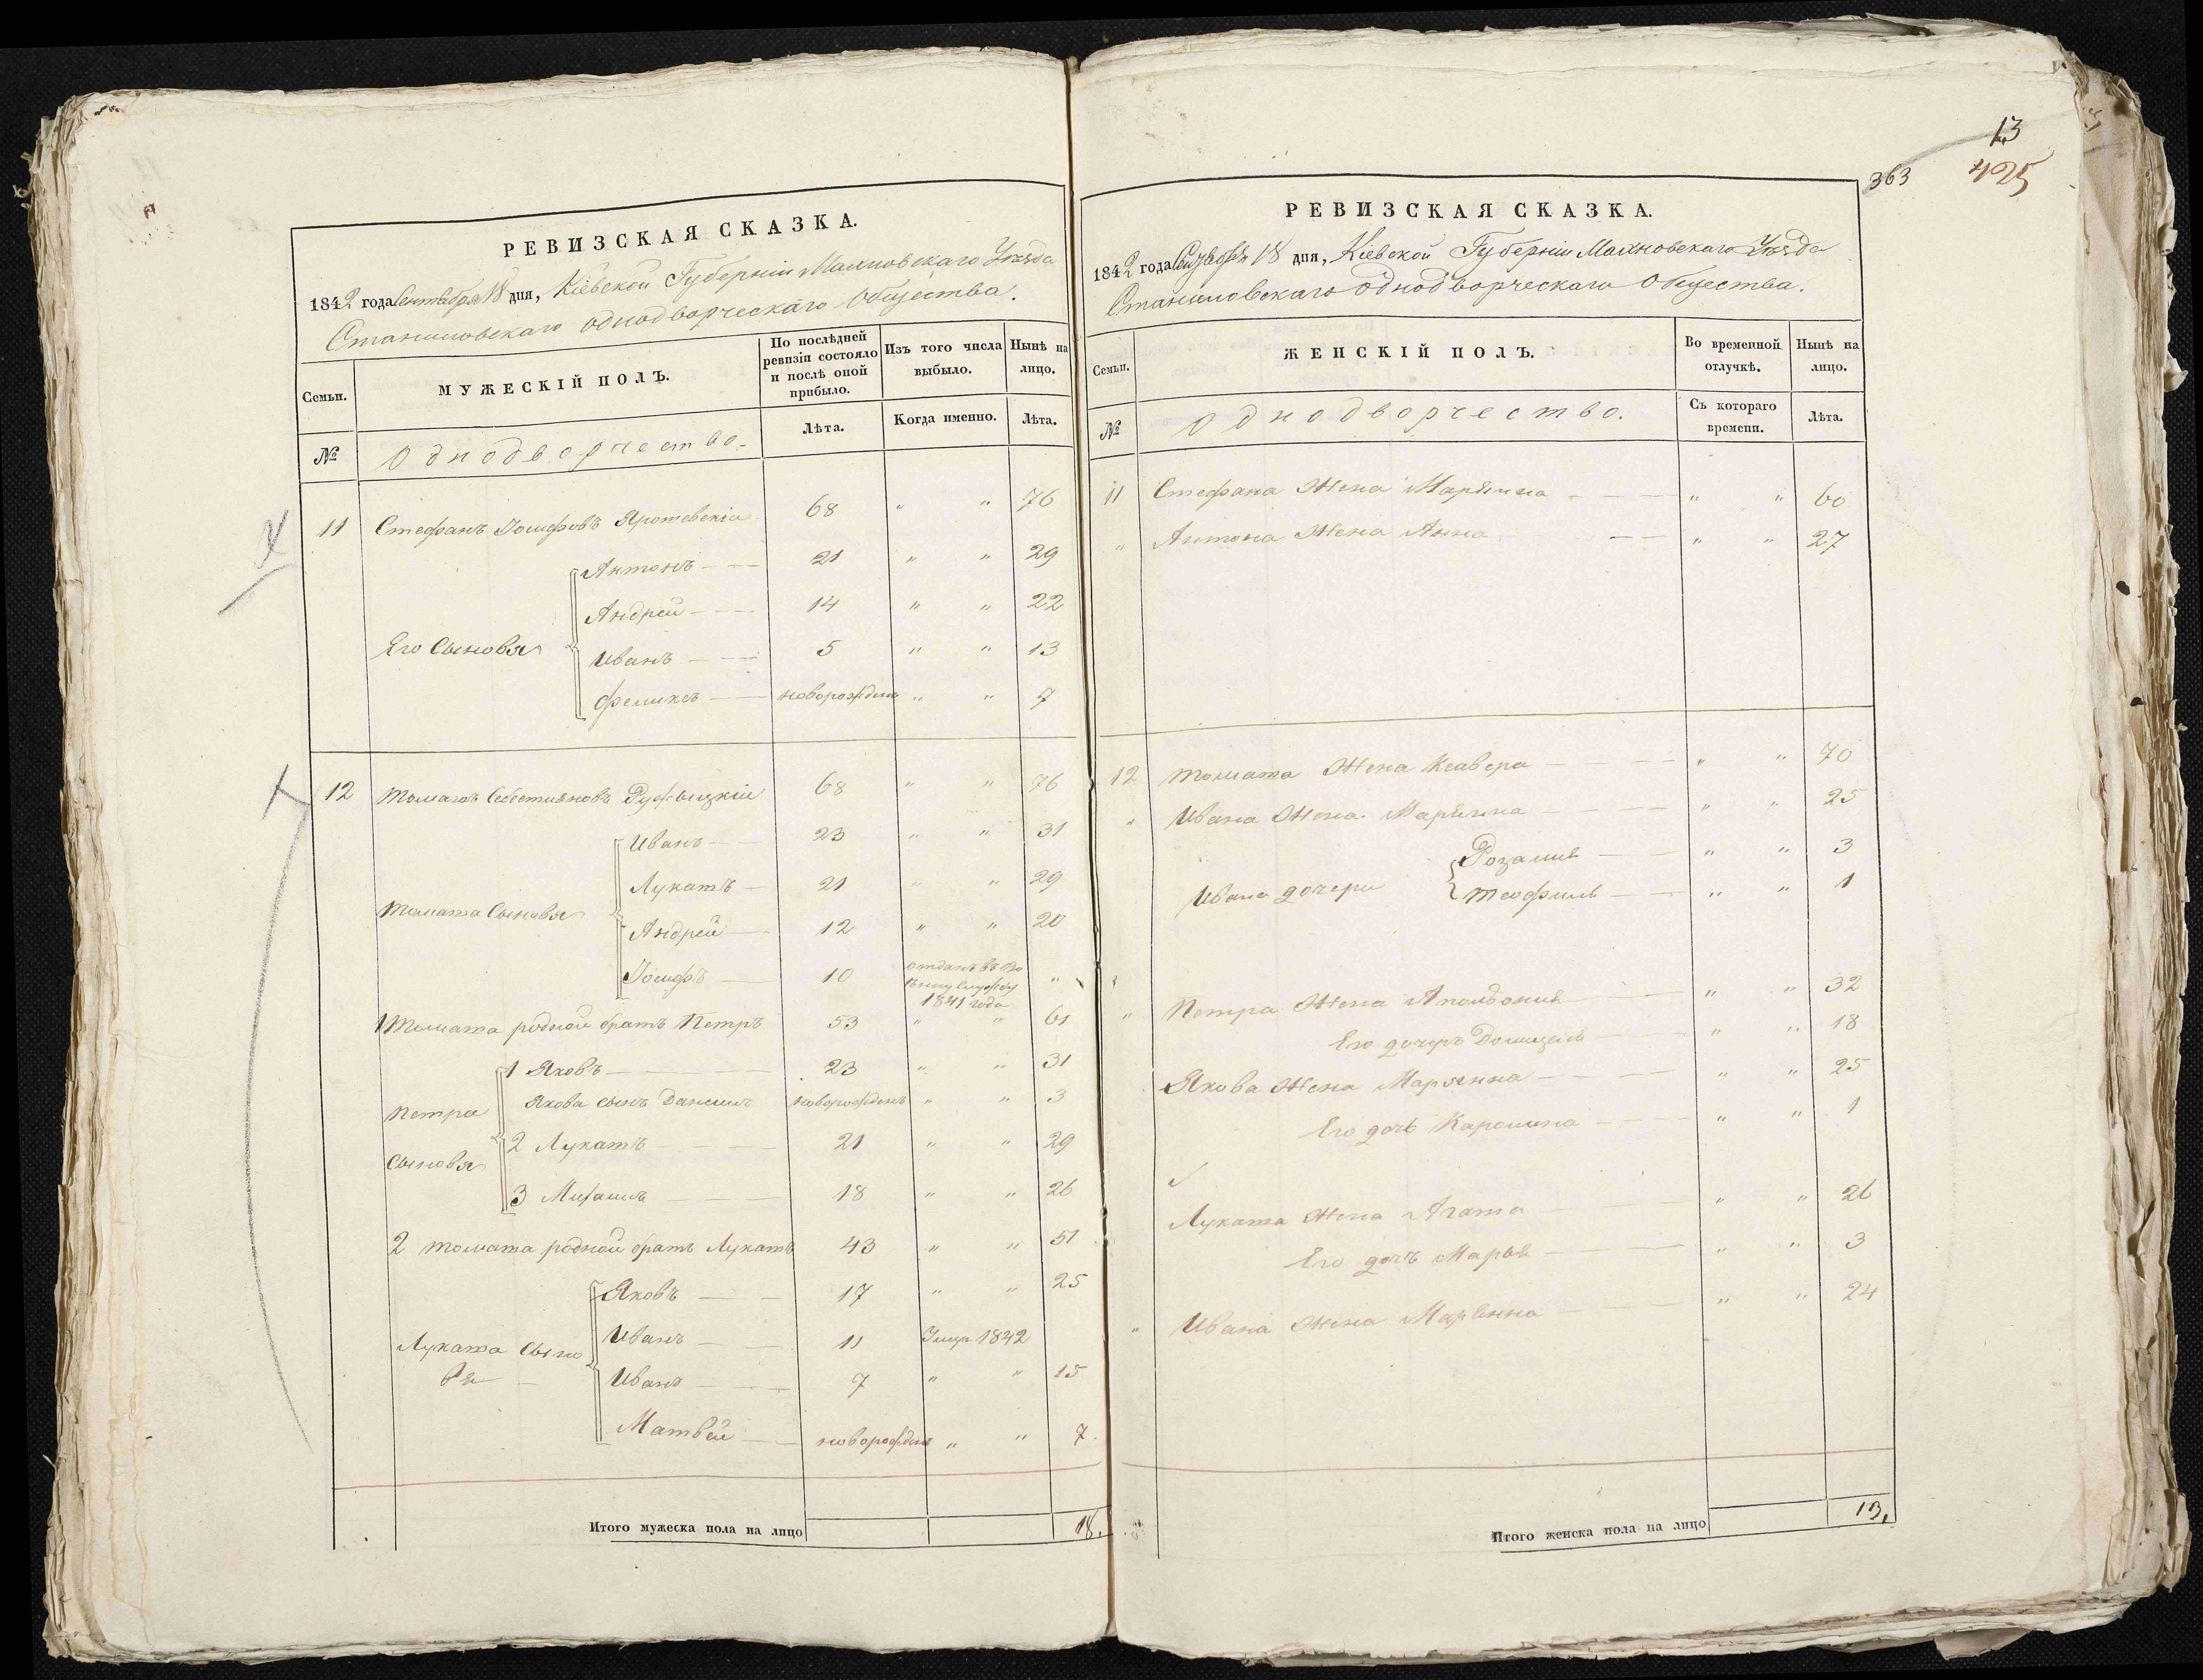 РЕВИЗСКАЯ СКАЗКА.
1842 года Сентября 18 дня, Кіевской Губерніи Махновскаго Уѣзда
Станиловскаго однодворческаго Общества.
Семьи.
МУЖЕСКІЙ ПОЛЪ.
По послѣдней ревизіи состояло и послѣ оной прибыло.
Изъ того числа выбыло.
Нынѣ на лицо.
№
Однодворчество.
Лѣта.
Когда именно.
Лѣта.
11 Стефанъ Іосифовъ 68 " " 76
Антонъ 21 " " 29
Андрей 14 " " 22
Его Сыновья Иванъ 5 " " 13
Феликсъ новорожденъ " " 7
12 Томашъ 68 " " 76
Иванъ 23 " " 31
Лукашъ 21 " " 29
Томаша Сыновья
Андрей 12 " " 20
Іосифъ 10 отданъ въ во
енну службу
1841 года "
1 Томаша родной братъ Петръ 53 " " 61
1 Яковъ 23 " " 31
Петра Якова сынъ новорожденъ " " 3
2 Лукашъ 21 " " 29
сыновья
3 Михаилъ 18 " " 26
2 Томаша родной братъ Лукашъ 43 " " 51
Яковъ 17 " " 25
Лукаша Сыно Иванъ 11 Умер 1842
вья Иванъ 7 " " 15
Матвей новорожден " " 7
Итого мужеска пола на лицо 18.
13
425
363
РЕВИЗСКАЯ СКАЗКА.
1842 года Сентября 18 дня, Кіевской Губерніи Махновскаго Уѣзда
Станиловскаго однодворческаго Общества.
Семьи.
ЖЕНСКІЙ ПОЛЪ.
Во временной отлучкѣ.
Нынѣ на лицо.
№
Однодворчество.
Съ котораго времени.
Лѣта.
11 Стефана Жена Маріянна " " 60
" Антона Жена Анна " " 27
12 Томаша Жена Ксавера " " 70
" Ивана Жена Маріянна " " 25
Розалия " " 3
Ивана дочери Теофиля " " 1
" Петра Жена Аполонія " " 32
Его дочерь " " 18
Якова Жена Марянна " " 25
Его дочь Каролина " " 1
Лукаша Жена Агата " " 26
Его дочь Марья " " 3
" Ивана Жена Маріянна " " 24
Итого женска пола на лицо 13.